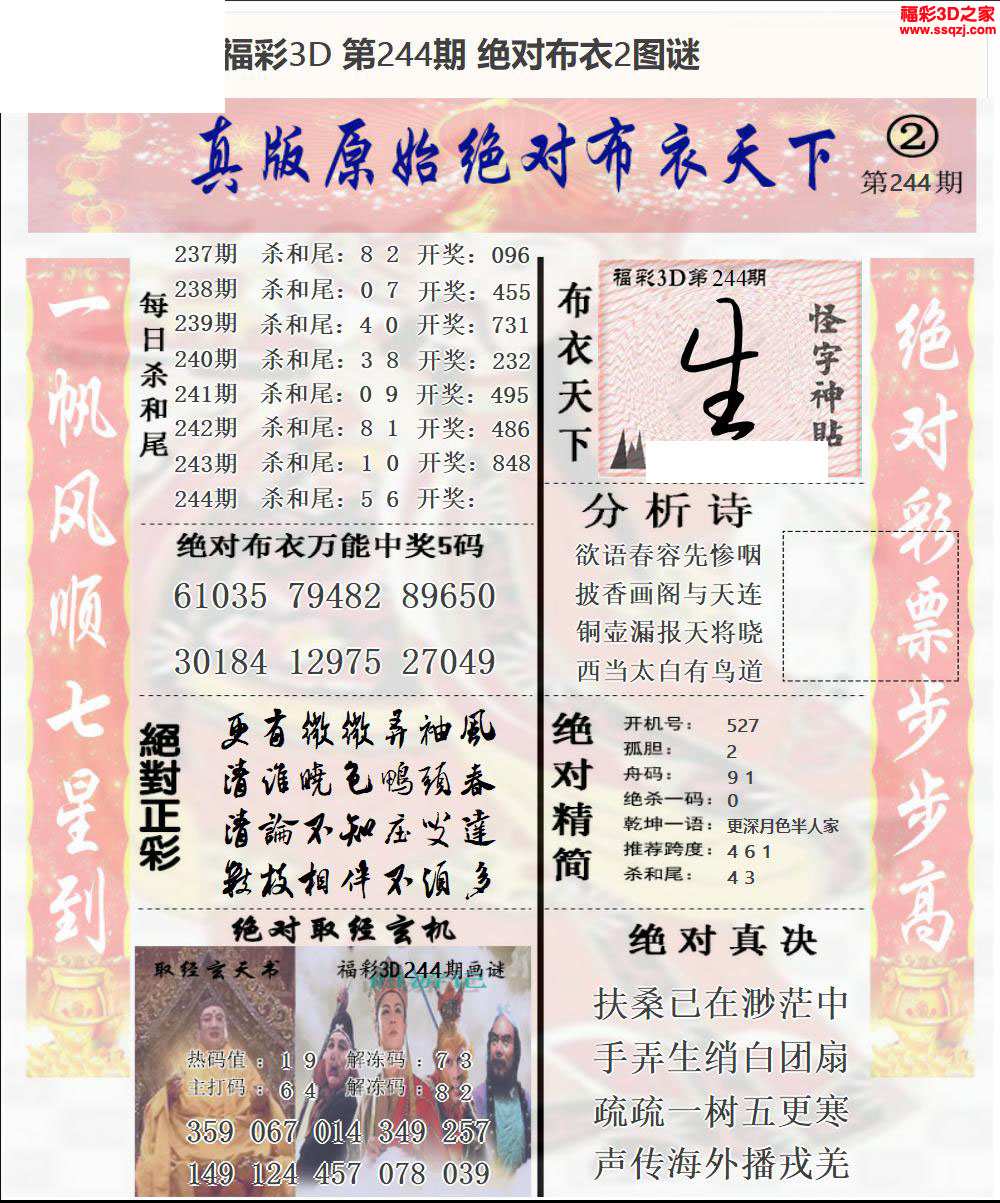 福彩3D之家
www.ssqzj.com
福彩3D 第244期 绝对布衣2图谜
真版原始绝对布衣天下
②
第244期
一帆风顺七星到
每日杀和尾
237期 杀和尾：8 2 开奖：096
238期 杀和尾：0 7 开奖：455
239期 杀和尾：4 0 开奖：731
240期 杀和尾：3 8 开奖：232
241期 杀和尾：0 9 开奖：495
242期 杀和尾：8 1 开奖：486
243期 杀和尾：1 0 开奖：848
244期 杀和尾：5 6 开奖：
绝对布衣万能中奖5码
61035 79482 89650
30184 12975 27049
絕對正彩
更有微微弄袖風
清淮曉色鴨頭春
清論不知庄叟達
數枝相伴不須多
绝对取经玄机
取经玄天书
福彩3D244期画谜
热码值：1 9 解冻码：7 3
主打码：6 4 解冻码：8 2
359 067 014 349 257
149 124 457 078 039
布衣天下
福彩3D第244期
生
怪字神貼
分析诗
欲语春容先惨咽
披香画阁与天连
铜壶漏报天将晓
西当太白有鸟道
绝对精简
开机号： 527
孤胆： 2
舟码： 9 1
绝杀一码：0
乾坤一语：更深月色半人家
推荐跨度：4 6 1
杀和尾： 4 3
绝对真决
扶桑已在渺茫中
手弄生绡白团扇
疏疏一树五更寒
声传海外播戎羌
绝对彩票步步高